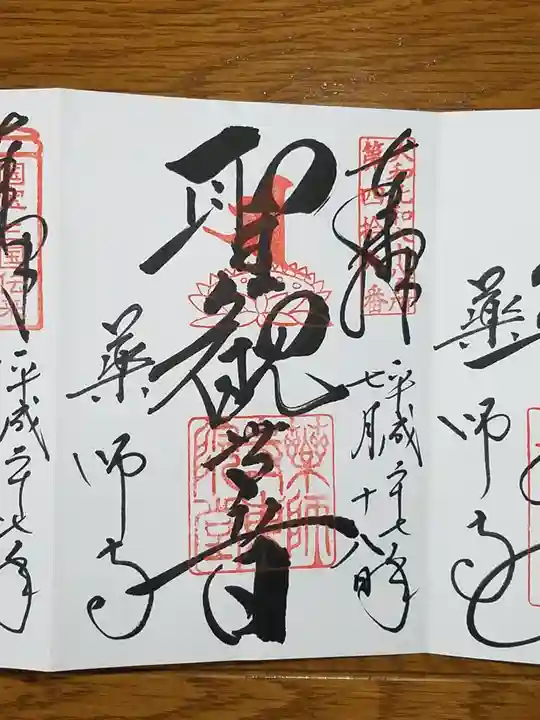 薬師寺
奉拝
平成二十七年
七月十八日
聖観世音
薬師寺東院堂
薬師寺
奉拝
平成二十七年